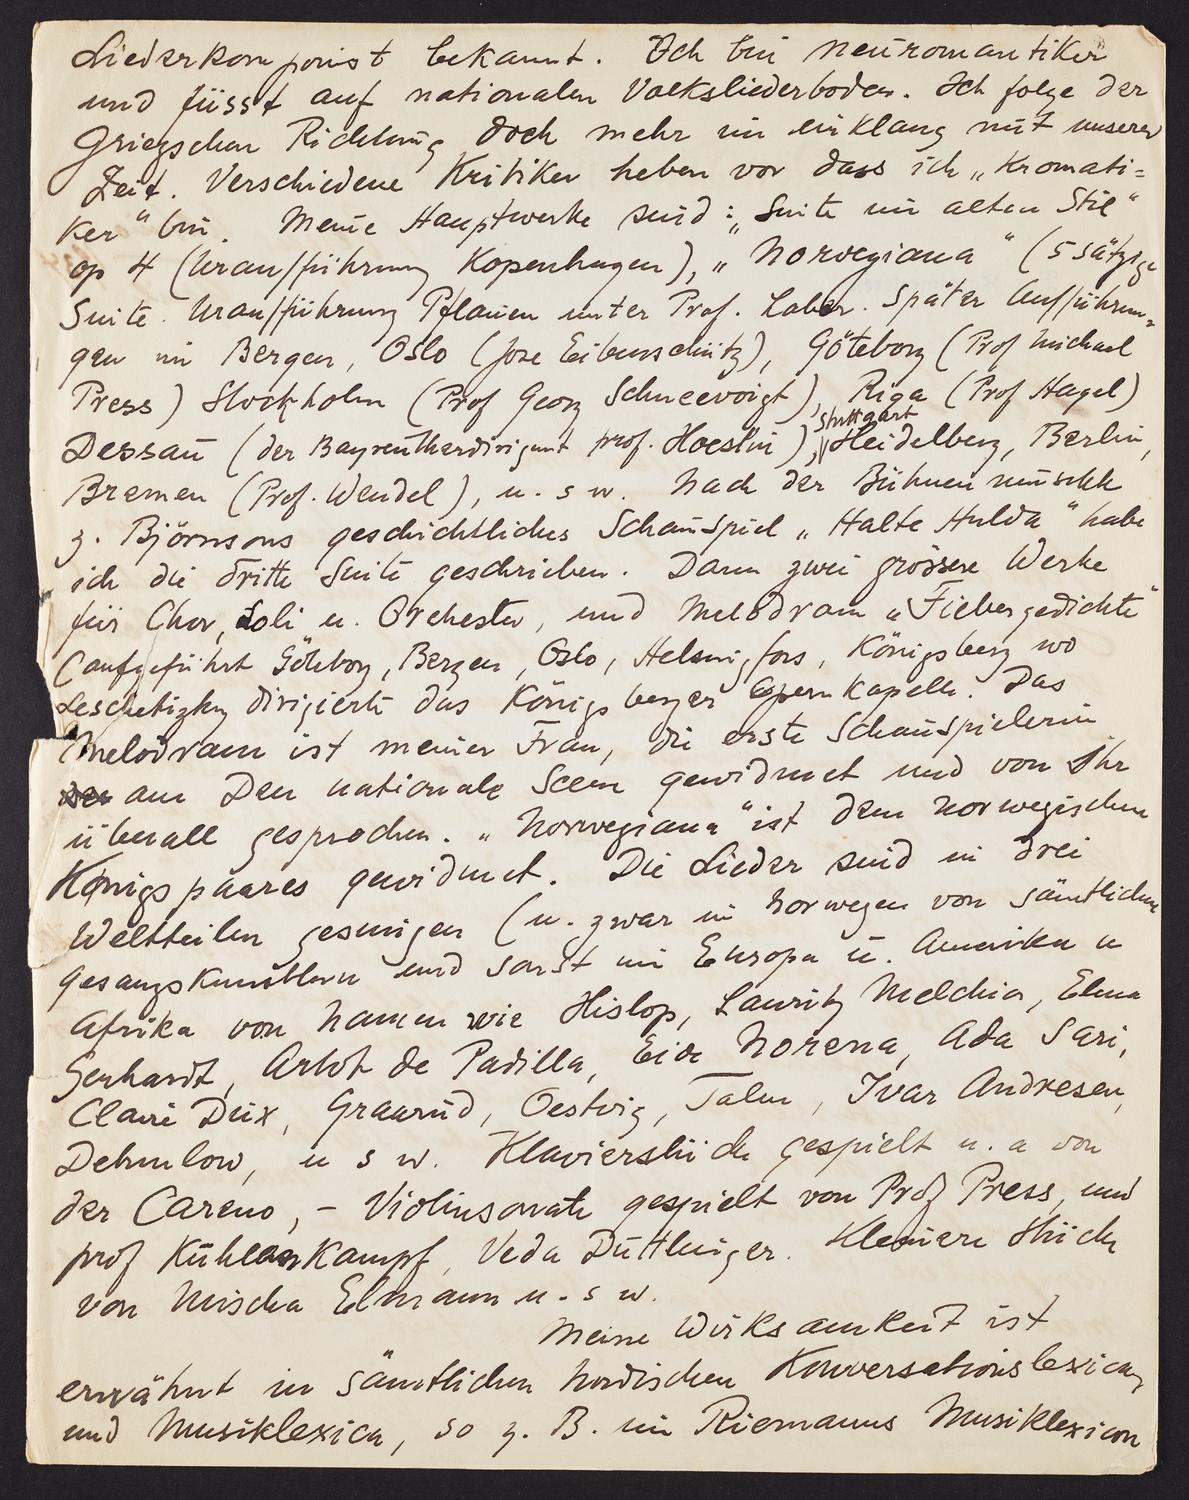 Liederkomponist bekannt. Ich bin neuromantiker
und füsst auf nationalen Volksliederboden. Ich folge der
Griegschen Richtung doch mehr im einklang mit unserer
Zeit. Verschiedene Kritiker heben vor dass ich „Kromati=
ker" bin. Meine Hauptwerke sind: „Suite im alten Stil"
op 4 (Urauffführung Kopenhagen), „Norwegiana" (5 sätzige
Suite. Urauffführung Plauen unter Prof. Laber. Später Aufführun=
gen in Bergen, Oslo (Jose Eibenschütz), Göteborg (Prof Michael
Press) Stockholm (Prof Georg Schneevoigt), Riga (Prof Hagel)
Stuttgart
Dessau (der Bayreutherdirigent prof. Hoeslin), Heidelberg, Berlin,
Bremen (Prof. Wendel), u. s w. Nach der Bühnenmusikk
z. Björnsons geschichtliches Schauspiel „Halte Hulda" habe
ich die dritte Suite geschrieben. Dann zwei grössere Werke
für Chor, Soli u. Orchester, und Melodram „Fiebergedichte"
(aufgeführt Göteborg, Bergen, Oslo, Helsingfors, Königsberg wo
Leschetizky dirigierte das Königsberger Opernkapelle. Das
Melodram ist meiner Frau, die erste Schauspielerin
am Den nationale Scene gewidmet und von Ihr
überall gesprochen. „Norwegiana" ist dem norwegischen
Königspaares gewidmet. Die Lieder sind in drei
Weltteilen gesungen (u. zwar in Norwegen von sämtlichen
Gesangskunstlern und sonst in Europa u. Amerika u
Afrika von Namen wie Hislop, Lauritz Melchior, Elena
Gerhardt, Artot de Padilla, Eide Norena, Ada Sari,
Claire Dux, Graarud, Oestvig, Talen, Ivar Andresen,
Dehmlow, u s w. Klavierstücke gespielt u. a von
der Careno, – Violinsonate gespielt von Prof Press, und
prof Kühlenkampf, Veda Düttlinger. Kleinere Stücke
von Mischa Elmann u. s w.
Meine Wirksamkeit ist
erwähnt in sämtlichen Nordischen Konversationslexica,
und Musiklexica, so z. B. im Riemanns Musiklexicon